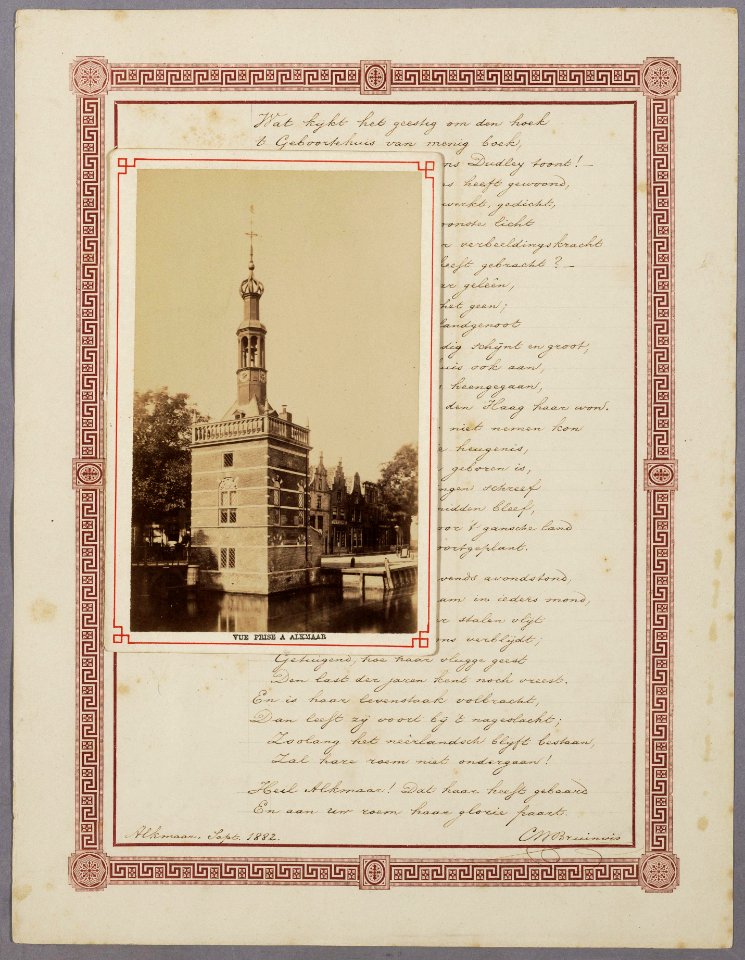 Wat kykt het geestig om den hoek
't Geboortehuis van menig boek,
ons Dudley toont! —
heeft gewoond,
werkt, gedicht,
licht
verbeeldingskracht
heeft gebracht? —
geléên,
het geen;
landgenoot
schijnt en groot,
huis ook aan,
heengegaan,
den Haag haar won.
niet nemen kon
heugenis,
geboren is,
schreef
midden bleef,
voor 't gansche land
voortgeplant.
avondstond,
naam in ieders mond,
stalen vlyt
ons verblydt;
Getuigend, hoe haar vlugge geest
Den last der jaren kent noch vreest.
En is haar levenstaak volbracht,
Dan leeft zy voort by 't nageslacht;
Zoolang het neêrlandsch blyft bestaan,
Zal hare roem niet ondergaan!
Heil Alkmaar! Dat haar heeft gebaard
En aan uw roem haar glorie paart.
Alkmaar, Sept. 1882.
CWBruinvis
VUE PRISE A ALKMAAR